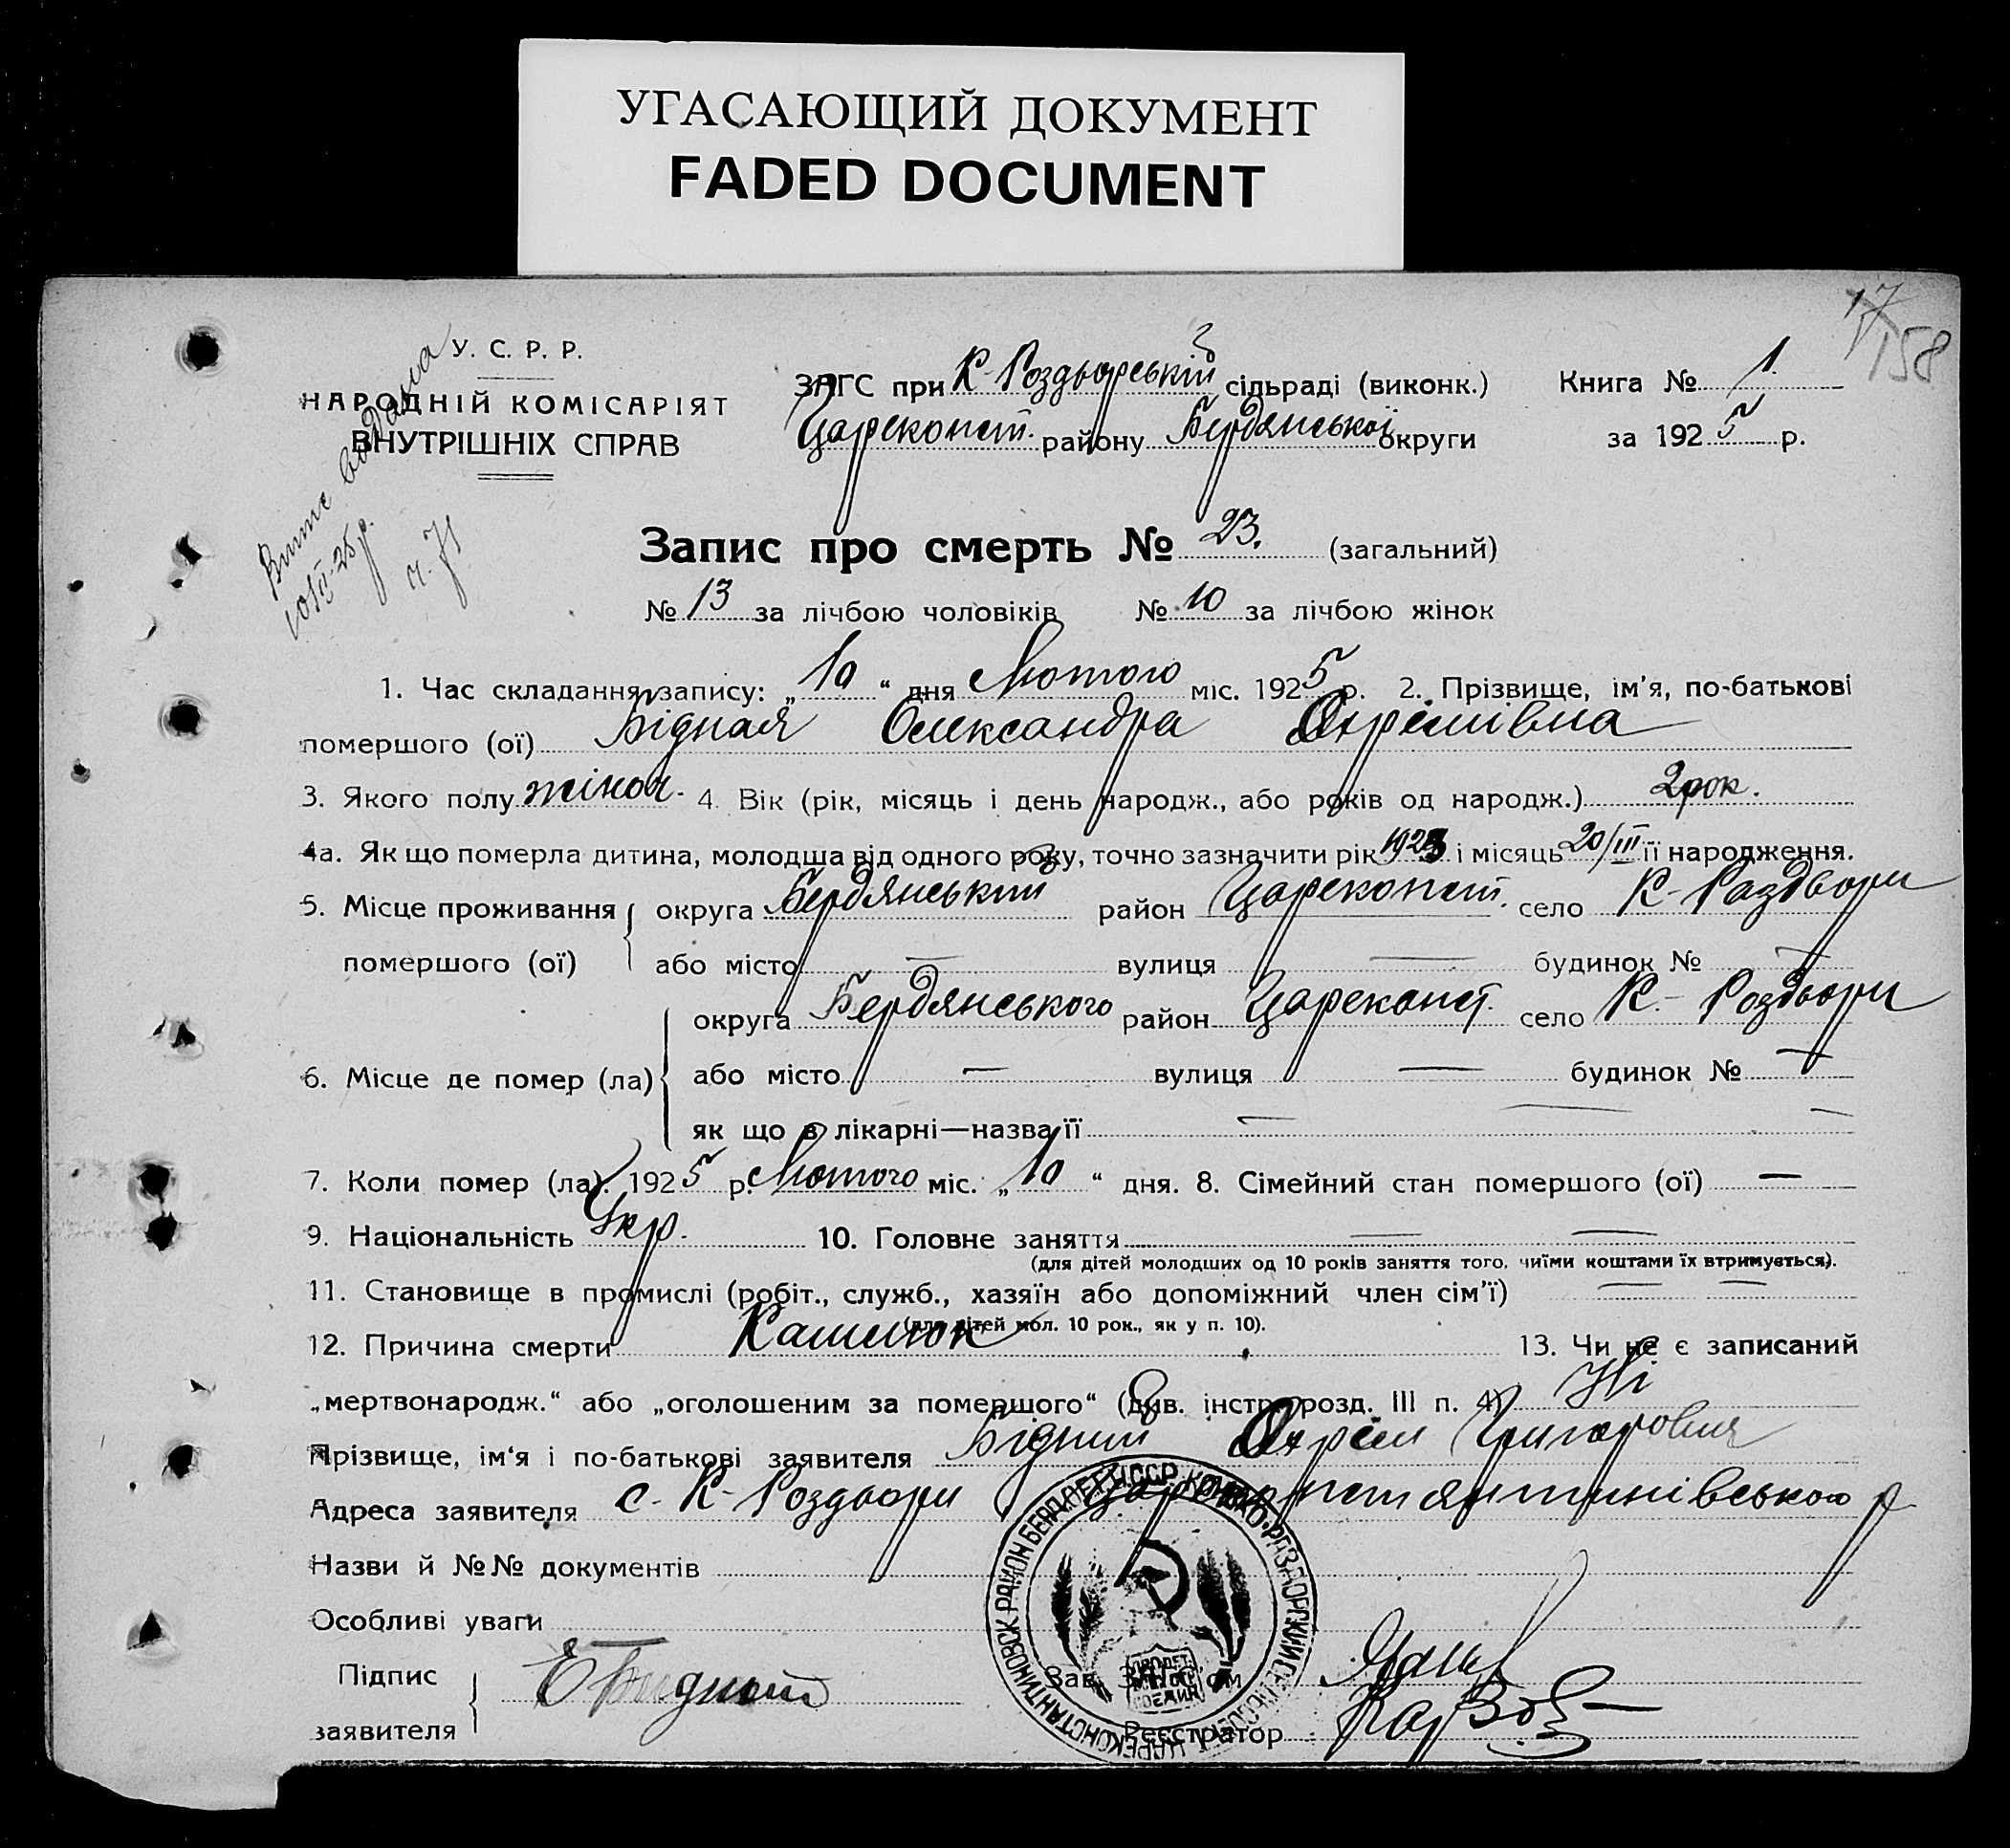 УГАСАЮЩИЙ ДОКУМЕНТ
FADED DOCUMENT
17
158
У. С. Р. Р.
НАРОДНІЙ КОМІСАРІЯТ
ВНУТРІШНІХ СПРАВ
ЗАГС при К-Роздорській сільраді (виконк.) Книга № 1.
Цареконст. району Бердянської округи за 1925 р.
Запис про смерть № 23. (загальний)
№ 13 за лічбою чоловіків № 10 за лічбою жінок
1. Час складання запису: „10“ дня Лютого міс. 1925 р. 2. Прізвище, ім'я, по-батькові
помершого (ої) Бідная Олександра Охрімівна
3. Якого полу жіноч. 4. Вік (рік, місяць і день народж., або років од народж.) 2 рок.
4а. Як що померла дитина, молодша від одного року, точно зазначити рік 1923 і місяць 20/III її народження.
5. Місце проживання помершого (ої) округа Бердянський район Цареконст. село К-Раздори
або місто — вулиця — будинок № —
6. Місце де помер (ла) округа Бердянського район Цареконст. село К-Роздори
або місто — вулиця — будинок № —
як що в лікарні—назва її —
7. Коли помер (ла). 1925 р. Лютого міс. „10“ дня. 8. Сімейний стан помершого (ої) —
9. Національність Укр. 10. Головне заняття — —
(для дітей молодших од 10 років заняття того, чиїми коштами їх втримується).
11. Становище в промислі (робіт., служб., хазяїн або допоміжний член сім'ї) — —
(для дітей мол. 10 рок., як у п. 10).
12. Причина смерти Кашлюк 13. Чи не є записаний
„мертвонародж.“ або „оголошеним за помершого“ (див. інстр. розд. III п. 4) Ні
Прізвище, ім'я і по-батькові заявителя Бідний Охрім Григорович
Адреса заявителя с. К-Роздори Цареконстянтинівського р
Назви й №№ документів
Особливі уваги
Підпис заявителя Е Бидной
Зав. ЗАГС'ом
Реєстратор